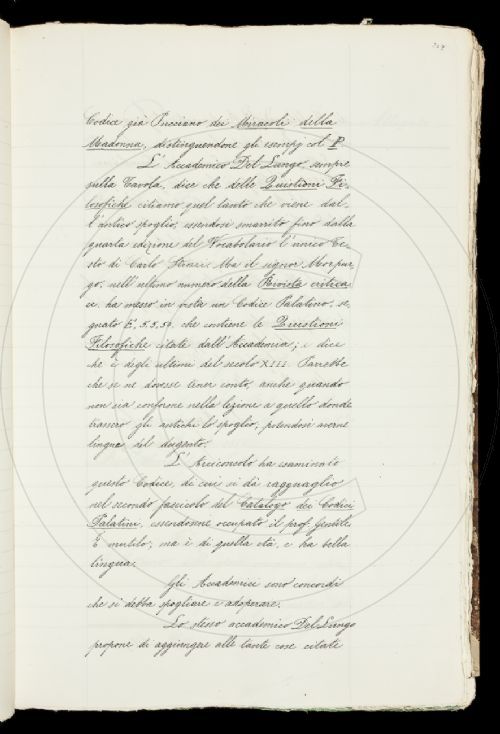 Codice già Pucciano dei Miracoli della
Madonna, distinguendone gli esempj col P.
L'Accademico Del Lungo, sempre
sulla Tavola, dice che delle Quistioni Fi-
losofiche citiamo quel tanto che viene dal-
l'antico spoglio, essendosi smarrito fino dalla
quarta edizione del Vocabolario l'unico Te-
sto di Carlo Strozzi. Ma il signor Morpur-
go, nell'ultimo numero della Rivista critica
ec. ha messo in vista un Codice Palatino, se-
gnato E, 5, 5, 50. che contiene le Quistioni
Filosofiche citate dall'Accademia; e dice
che è degli ultimi del secolo XIII. Parrebbe
che se ne dovesse tener conto, anche quando
non sia conforme nella lezione a quello donde
trassero gli antichi lo spoglio, potendosi averne
lingua del dugento.
L'Arciconsolo ha esaminato
questo Codice, di cui si dà ragguaglio
nel secondo fascicolo del Catalogo dei Codici
Palatini, essendonne occupato il prof. Gentile.
È mutilo, ma è di quella età, e ha bella
lingua.
Gli Accademici sono concordi
che si debba spogliare e adoperare.
Lo stesso accademico Del Lungo
propone di aggiungere alle tante cose citate